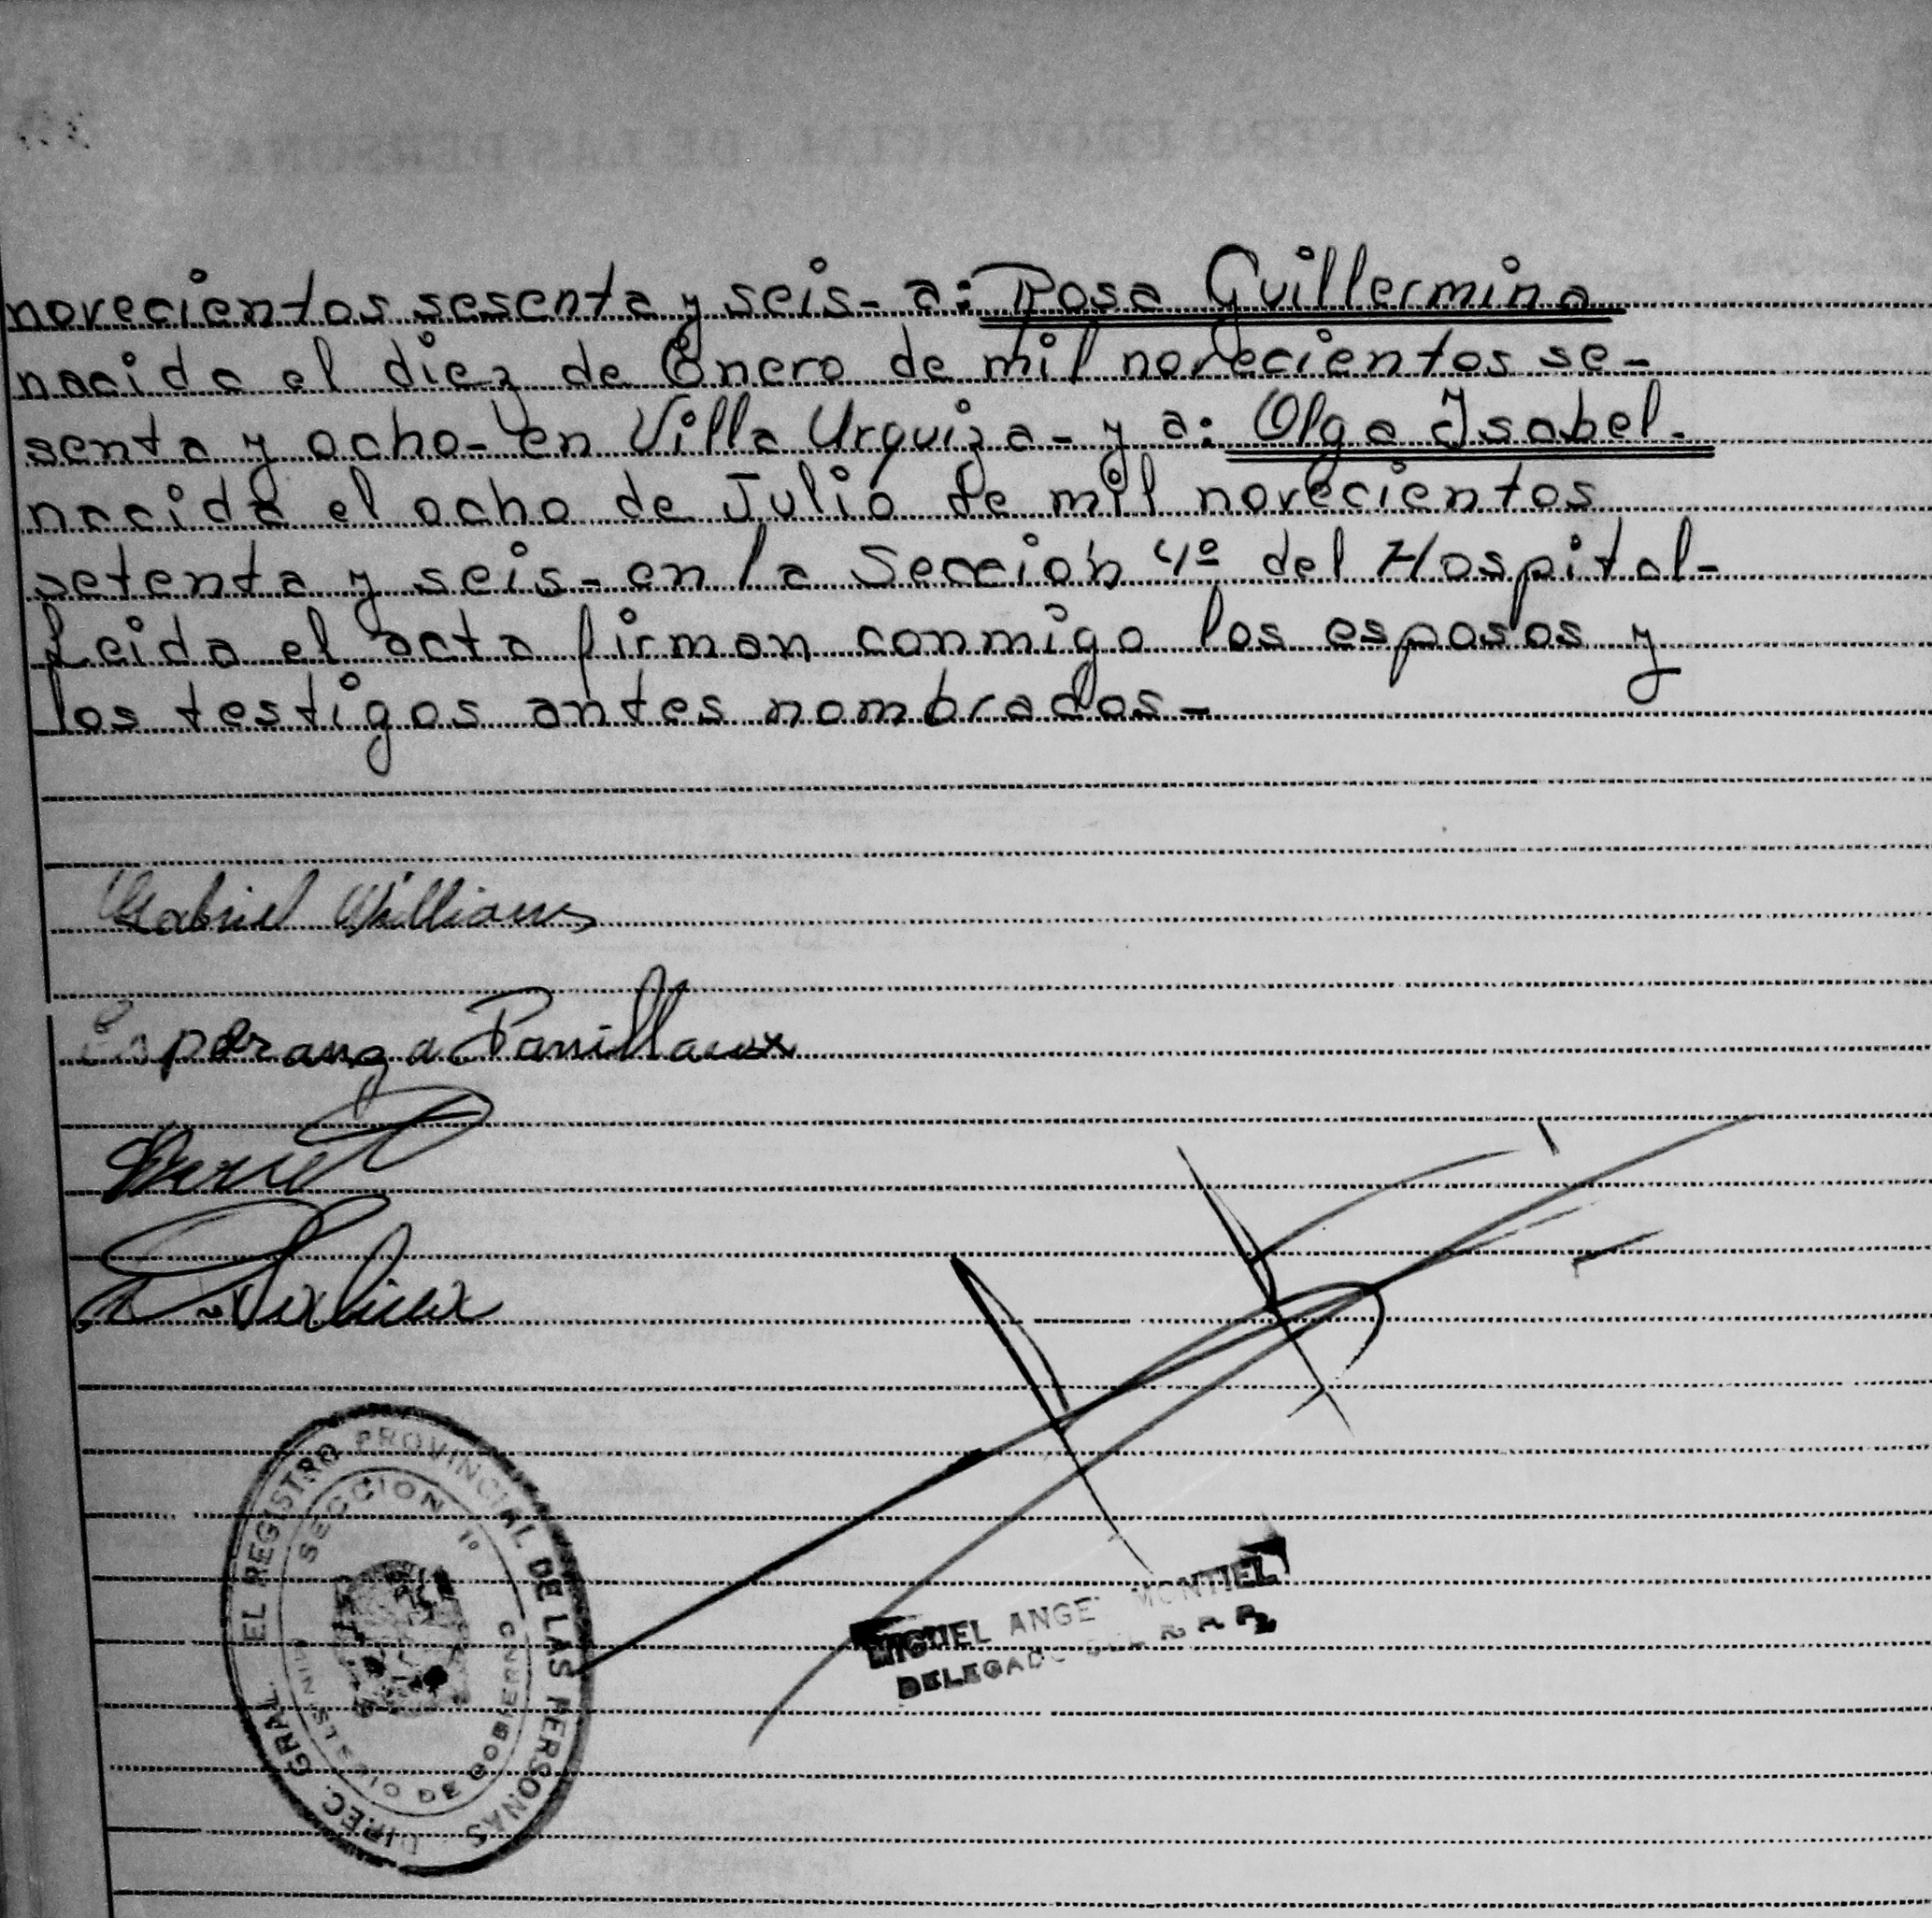 novecientos sesenta y seis- a: Rosa Guillermina
nacida el diez de Enero de mil novecientos se-
senta y ocho- en Villa Urquiza- y a: Olga Isabel-
nacida el ocho de Julio de mil novecientos
setenta y seis- en la Sección 4º del Hospital-
Leida el acta firman conmigo los esposos y
los testigos antes nombrados-
Gabriel Williams
Esperanza
DIREC. GRAL. EL REGISTRO PROVINCIAL DE LAS PERSONAS
SECCION 1º
DE GOBIERNO
MIGUEL ANGEL MONTIEL
DELEGADO